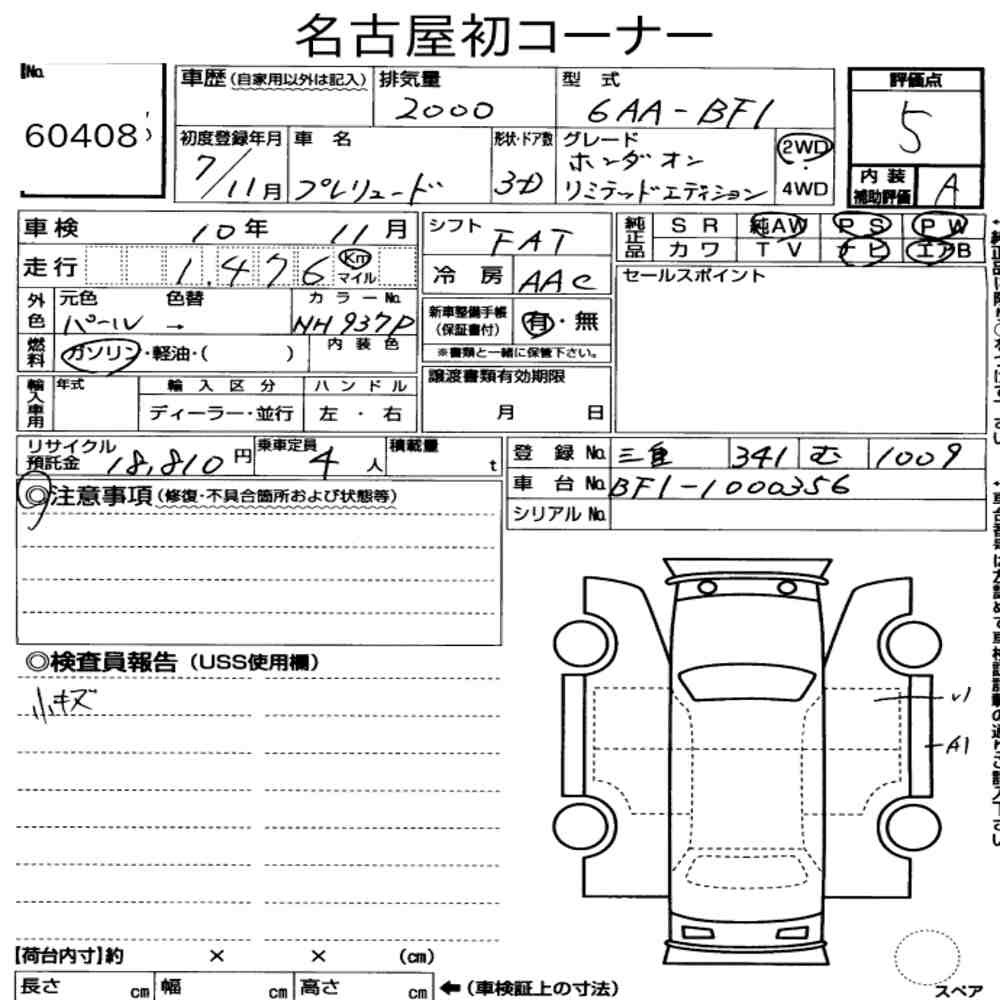 名古屋初コーナー
No.
60408
車歴 (自家用以外は記入)
排気量
2000
型式
6AA-BF1
評価点
5
初度登録年月
7/11月
車名
プレリュード
形状・ドア数
3D
グレード
ホンダ オン
リミテッドエディション
2WD
・
4WD
内装
補助評価
A
車検
10年 11月
シフト
FAT
純正品
SR 純AW PS PW
カワ TV ナビ エアB
走行
1,476
Km
マイル
冷房
AAC
セールスポイント
外色
元色 色替
パール →
カラーNo.
NH937P
新車整備手帳
(保証書付)
有・無
※書類と一緒に保管下さい。
燃料
ガソリン・軽油・( )
内装色
輸入車用
年式
輸入区分
ハンドル
ディーラー・並行
左・右
譲渡書類有効期限
月 日
リサイクル
預託金
18,810円
乗車定員
4人
積載量
t
登録No.
三重 341 む 1009
車台No.
BF1-1000356
シリアルNo.
◎注意事項(修復・不具合箇所および状態等)
◎検査員報告(USS使用欄)
小キズ
U1
A1
【荷台内寸】約 × × (cm)
長さ cm 幅 cm 高さ cm ←(車検証上の寸法)
スペア